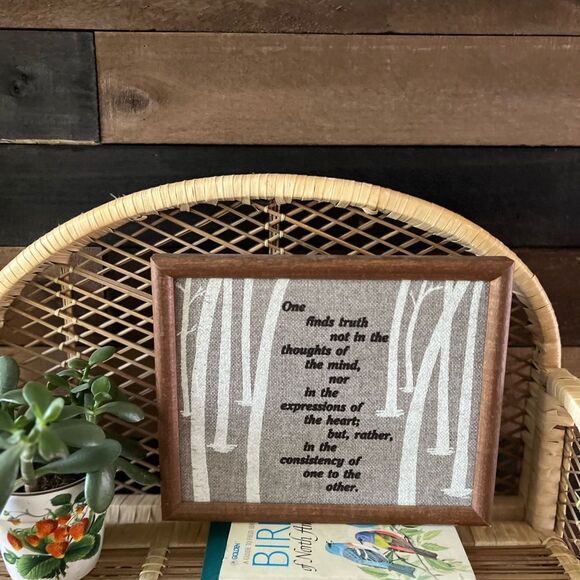 One
finds truth
not in the
thoughts of
the mind,
nor
in the
expressions of
the heart;
but, rather,
in the
consistency of
one to the
other.
GOLDEN
A GUIDE TO FIELD
BIR
of North